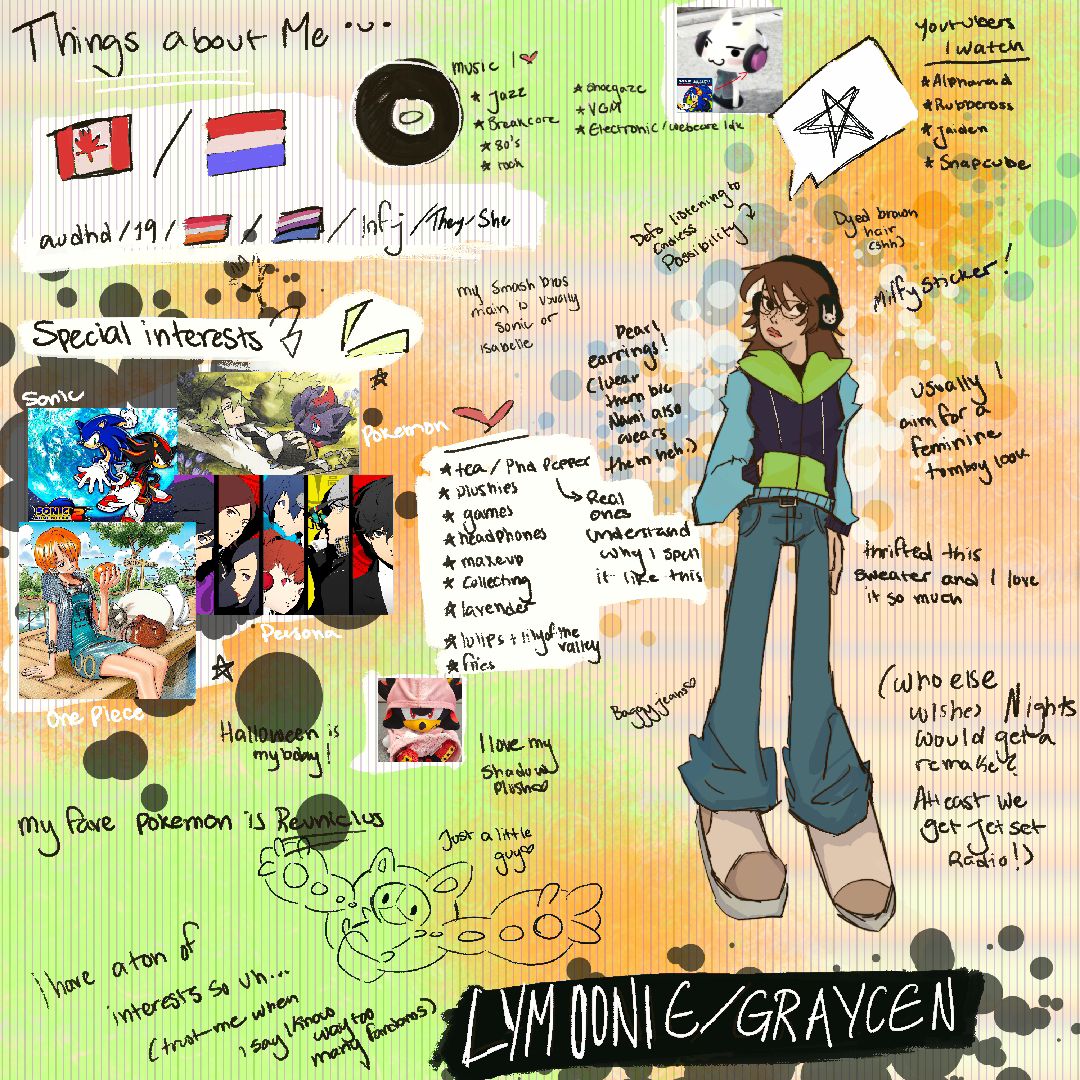 Things about Me
music I
★ Jazz
★ Breakcore
★ 80's
★ rock
★ Shoegaze
★ VGM
★ Electronic / webcore idk
youtubers
I watch
★ Alpharad
★ Rubberross
★ Jaiden
★ Snapcube
audhd / 19 / / / Infj / They / She
Defo listening to
Endless
Possibility
Dyed brown
hair
(shh)
Miffy sticker!
my smash bros
main is usually
sonic or
isabelle
Special interests
Sonic
Pokemon
Persona
One Piece
Pearl
earrings!
(I wear
them b/c
Nami also
wears
them heh.)
usually I
aim for a
feminine
tomboy look
★ tea / Phd Pepper
★ plushies
★ games
★ headphones
★ makeup
★ collecting
★ lavender
★ tulips + lily of the
valley
★ fries
Real
ones
understand
why I spell
it like this
thrifted this
sweater and I love
it so much
Baggy jeans
(who else
wishes Nights
would get a
remake?
At least we
get Jet set
Radio!)
Halloween is
my bday!
I love my
Shadow
Plush
my fave pokemon is Reuniclus
Just a little
guy
i have a ton of
interests so uh...
(trust me when
i say I know
way too
many fandoms)
LYMOONIE/GRAYCEN